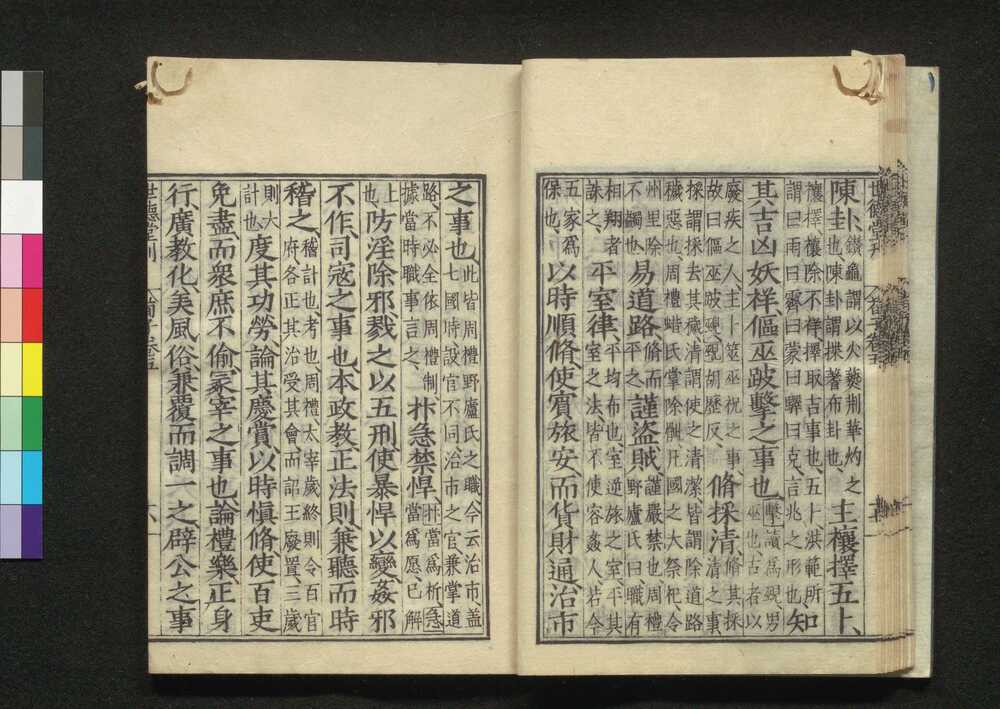 陳卦、鑽龜謂以火爇荆華灼之
也、陳卦謂揲蓍布卦也、主攘擇五卜、
禳擇、禳除不祥、擇取吉事也、五卜、洪範所
謂曰雨曰霽曰蒙曰驛曰克、言兆之形也、知
其吉凶妖祥、傴巫跛擊之事也、擊讀爲覡、男
巫也、古者以
廢疾之人、主卜筮巫祝之事、
故曰傴巫跛覡、覡胡歷反、脩採清、脩其採
清之事、
採謂採去其穢、清謂使之清潔、皆謂除道路
穢惡也、周禮蜡氏掌除骴、凡國之大祭祀、令
州里除
不蠲也、易道路、脩而
平之、謹盜賊、謹嚴禁也、周禮
野廬氏曰、職有
相翔者
誅之、平室律、平均布也、室逆旅之室、平其
室之法、皆不使容姦人、若今
五家爲
保也、以時順脩、使賓旅安、而貨財通、治市
之事也、此皆周禮野廬氏之職、今云治市、盖
七國時、設官不同、治市之官、兼掌道
路、不必全依周禮制、
據當時職事言之、抃急禁悍、抃當爲析、急
當爲愿、已解
上
也、防淫除邪、戮之以五刑、使暴悍以變、姦邪
不作、司寇之事也、本政教、正法則、兼聽而時
稽之、稽計也、考也、周禮太宰歲終則令百官
府各正其治、受其會、而詔王廢置、三歲
則大
計也、度其功勞、論其慶賞、以時愼脩、使百吏
免盡、而衆庶不偷、冢宰之事也、論禮樂、正身
行、廣教化、美風俗、兼覆而調一之、辟公之事
世德堂刊 荀子卷五 六